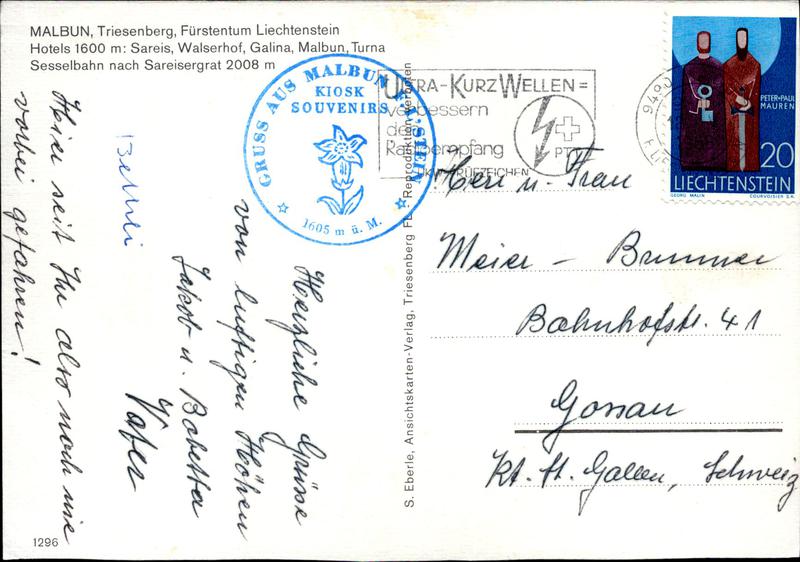 MALBUN, Triesenberg, Fürstentum Liechtenstein
Hotels 1600 m: Sareis, Walserhof, Galina, Malbun, Turna
Sesselbahn nach Sareisergrat 2008 m
GRUSS AUS MALBUN F. L'STEIN
KIOSK
SOUVENIRS
1605 m ü. M.
ULTRA-KURZWELLEN=
verbessern
den
Radioempfang
PTT
9490
PETER+PAUL
MAUREN
20
LIECHTENSTEIN
GEORG MALIN
COURVOISIER S.A.
Herr u. Frau
Meier - Brunner
Bahnhofstr. 41
Gossau
Kt. St. Gallen, Schweiz
S. Eberle, Ansichtskarten-Verlag, Triesenberg FL - Reproduktion verboten
Herzliche Grüsse
von luftigen Höhen
Jakob u. Babetta
Vater
Hier seit Ihr also noch nie
vorbei gefahren!
1296